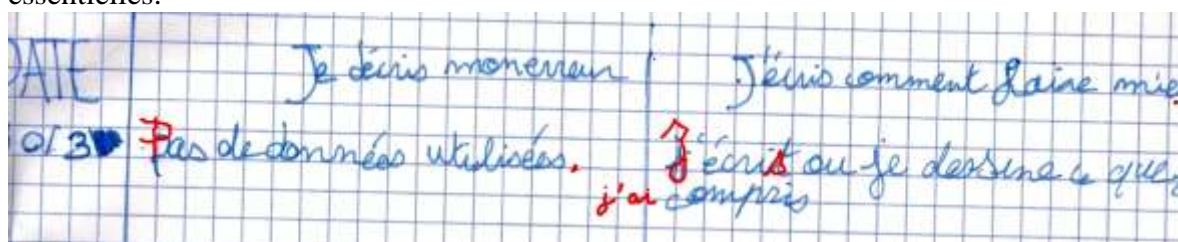 essentielles.
DATE Je décris mon erreur J'écris comment faire mie
0/3 Pas de données utilisées. J'écris ou je dessine ce que
j'ai compris